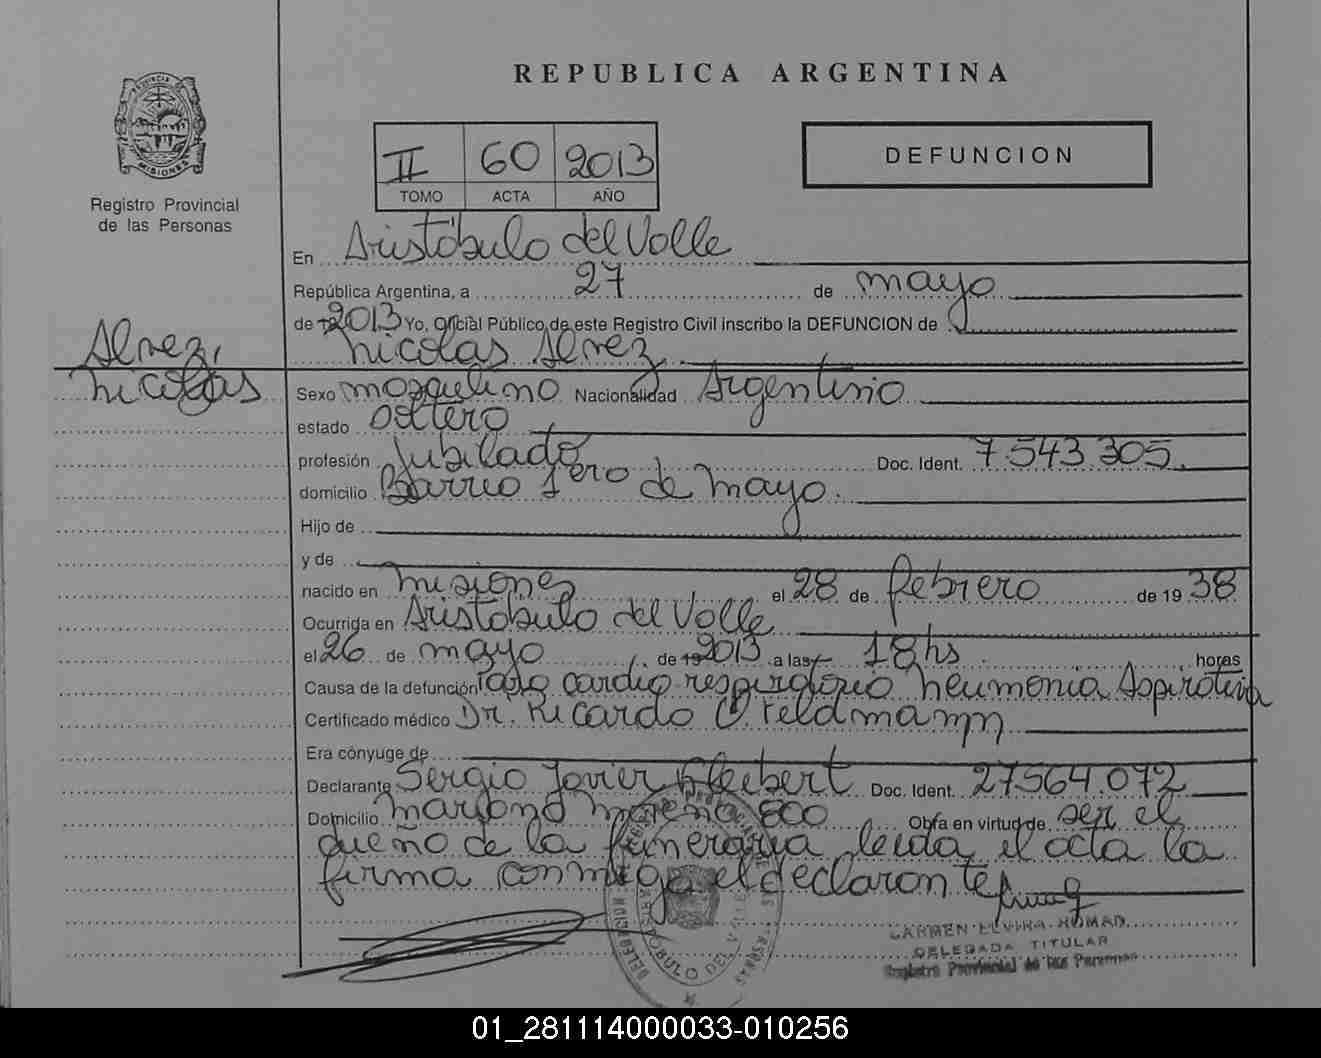 REPUBLICA ARGENTINA
PROVINCIA
MISIONES
Registro Provincial
de las Personas
II 60 2013
TOMO ACTA AÑO
DEFUNCION
En Aristóbulo del Valle
República Argentina, a 27 de mayo
de 2013 Yo, Oficial Público de este Registro Civil inscribo la DEFUNCION de
Nicolás Alvez
Alvez,
Nicolás
Sexo masculino Nacionalidad Argentino
estado soltero
profesión Jubilado Doc. Ident. 7.543.305.
domicilio Barrio 1ero de mayo.
Hijo de
y de
nacido en Misiones el 28 de febrero de 1938
Ocurrida en Aristóbulo del Valle
el 26 de mayo de 2013 a las 18 hs horas
Causa de la defunción paro cardio respiratorio neumonia Aspirativa
Certificado médico Dr. Ricardo O Feldmann
Era cónyuge de
Declarante Sergio Javier Doc. Ident. 27564.072
Domicilio Mariano Moreno 800 Obra en virtud de ser el
dueño de la funeraria leida el acta la
firma conmigo el declarante
CARMEN ELVIRA ROMAN
DELEGADA TITULAR
Registro Provincial de las Personas
ARISTOBULO DEL VALLE
01_281114000033-010256